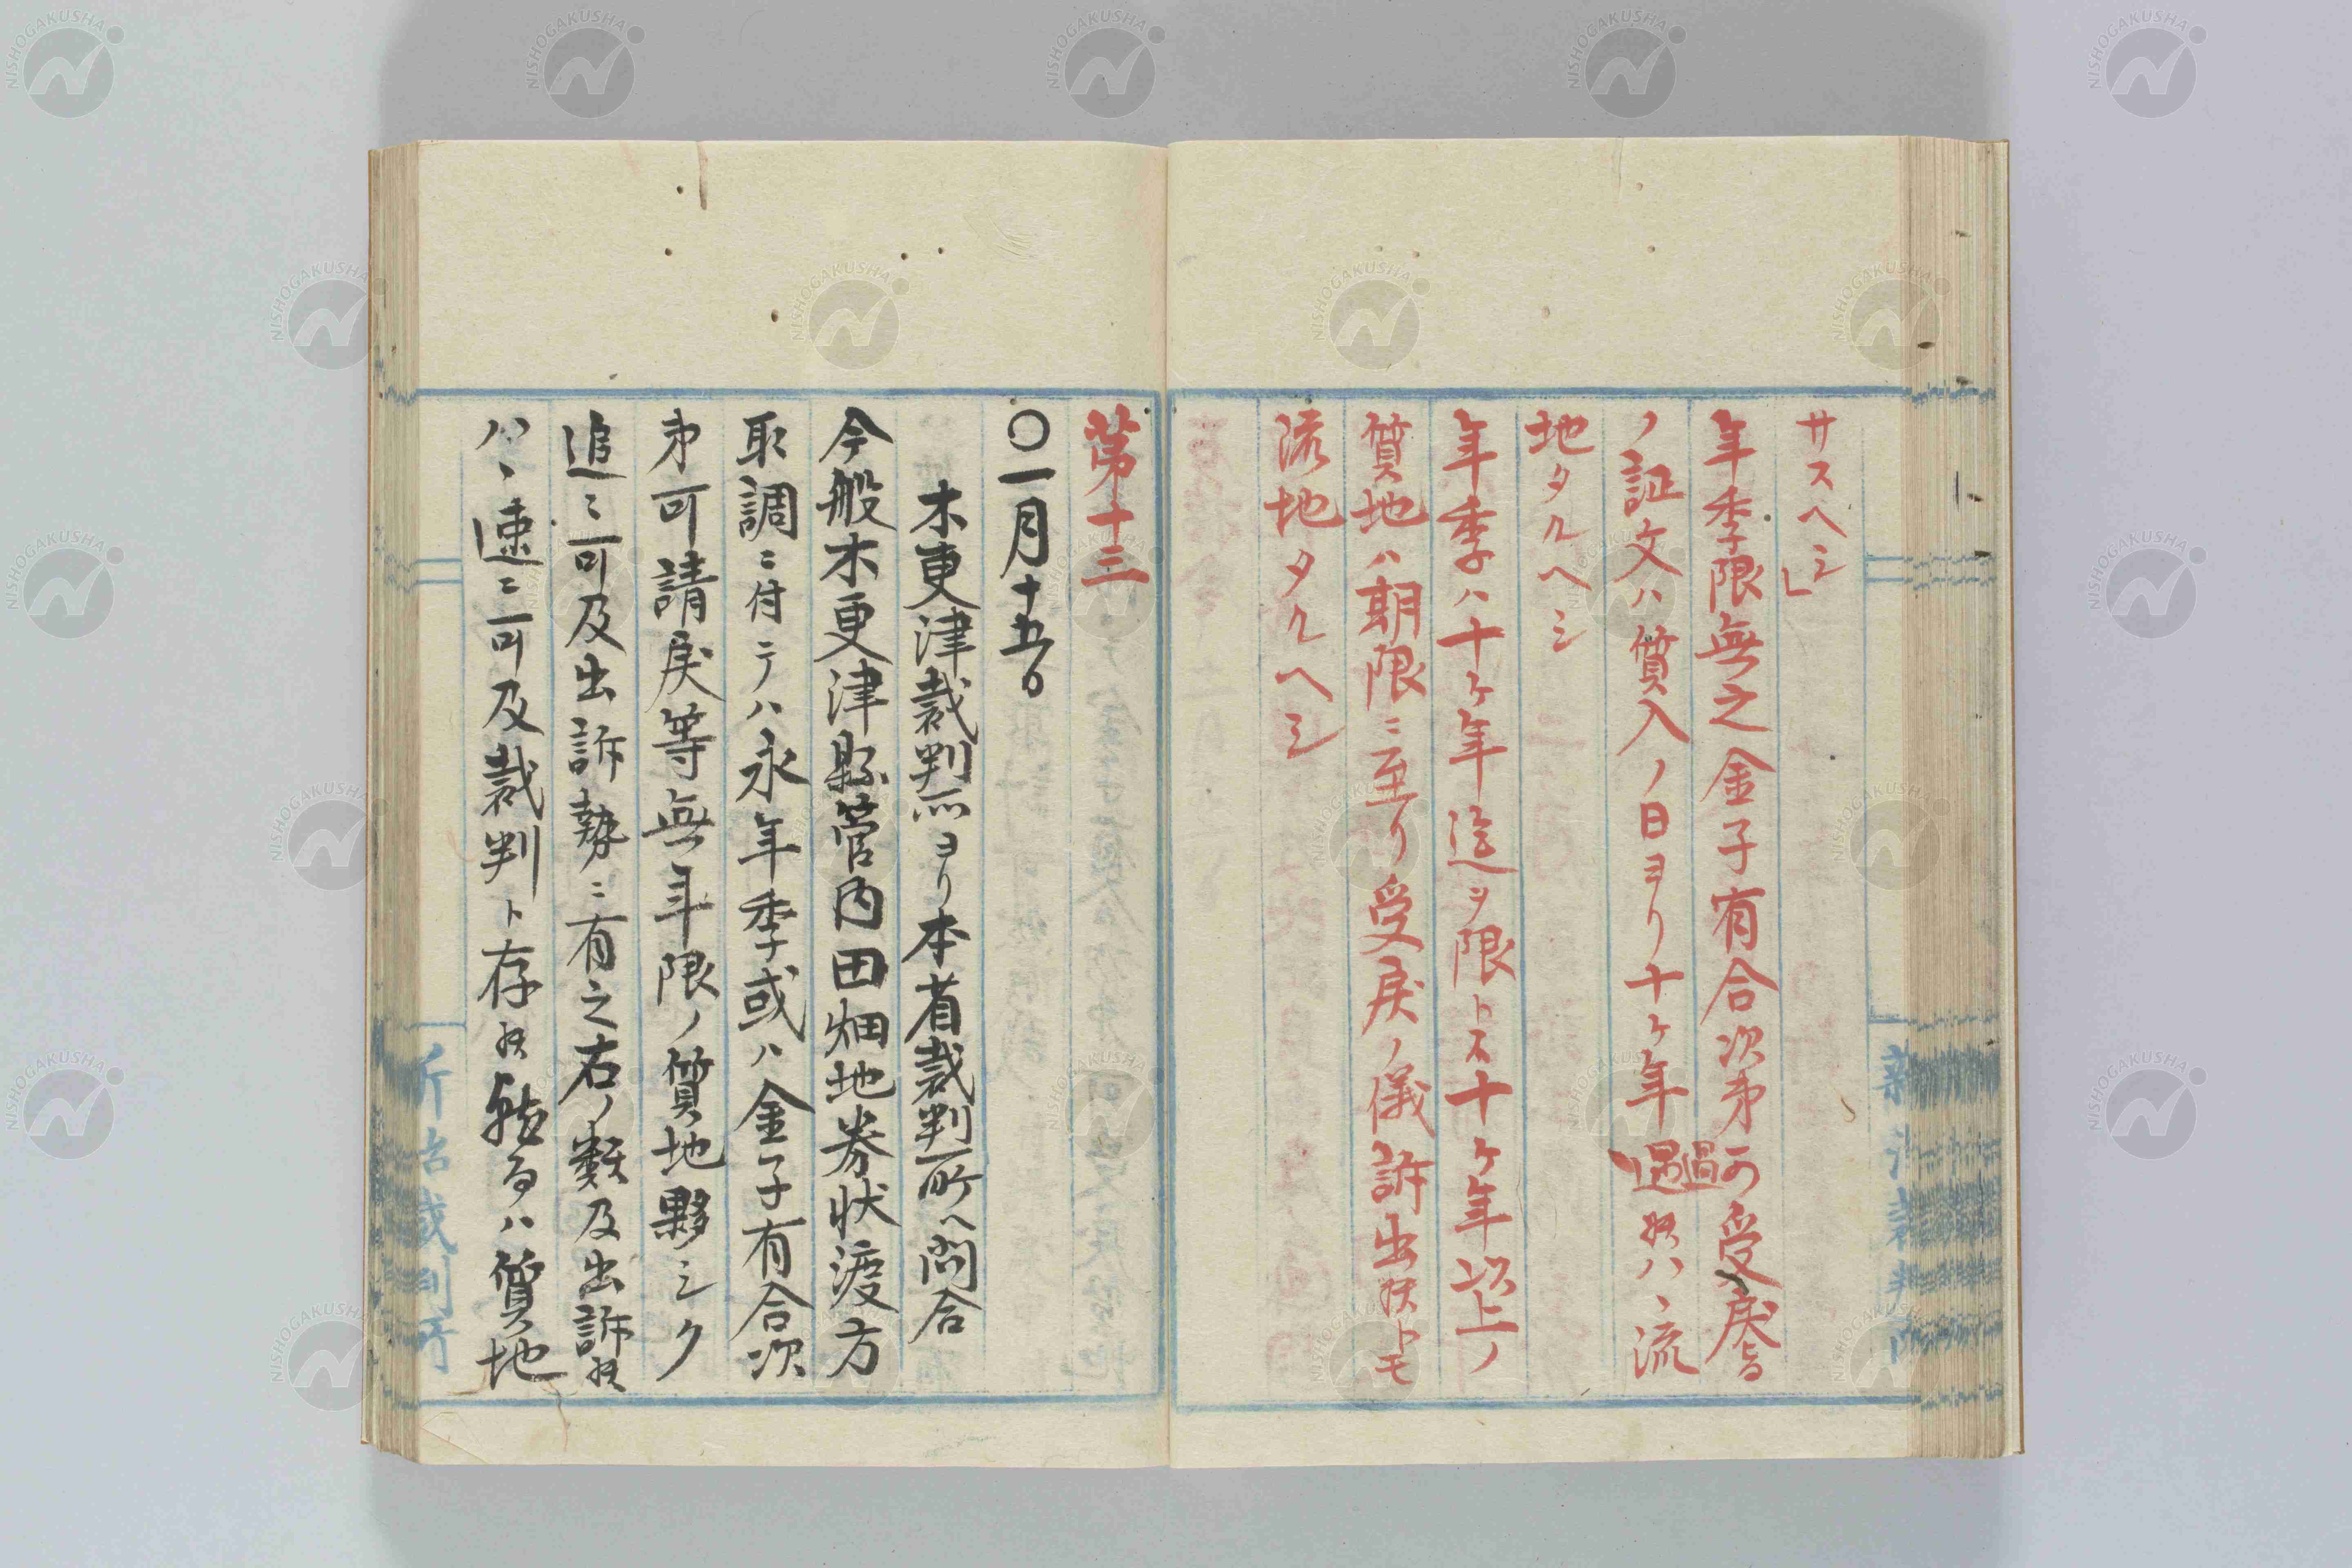 サスヘシ」
年季限無之金子有合次第可受戻ス
ノ証文ハ質入ノ日ヨリ十ケ年過候ハヽ流
地タルヘシ
年季ハ十ケ年迄ヲ限トス十ケ年以上ノ
質地ハ期限ニ至リ受戻ノ儀訴出候トモ
流地タルヘシ
第十三
〇一月十五日
木更津裁判所ヨリ本省裁判所ヘ問合
今般木更津縣管内田畑地券状渡方
取調ニ付テハ永年季或ハ金子有合次
第可請戻等無年限ノ質地夥シク
追々可及出訴勢ニ有之右ノ數及出訴候
ハヽ速ニ可及裁判ト存候 ハ質地
新治裁判所
NISHOGAKUSHA